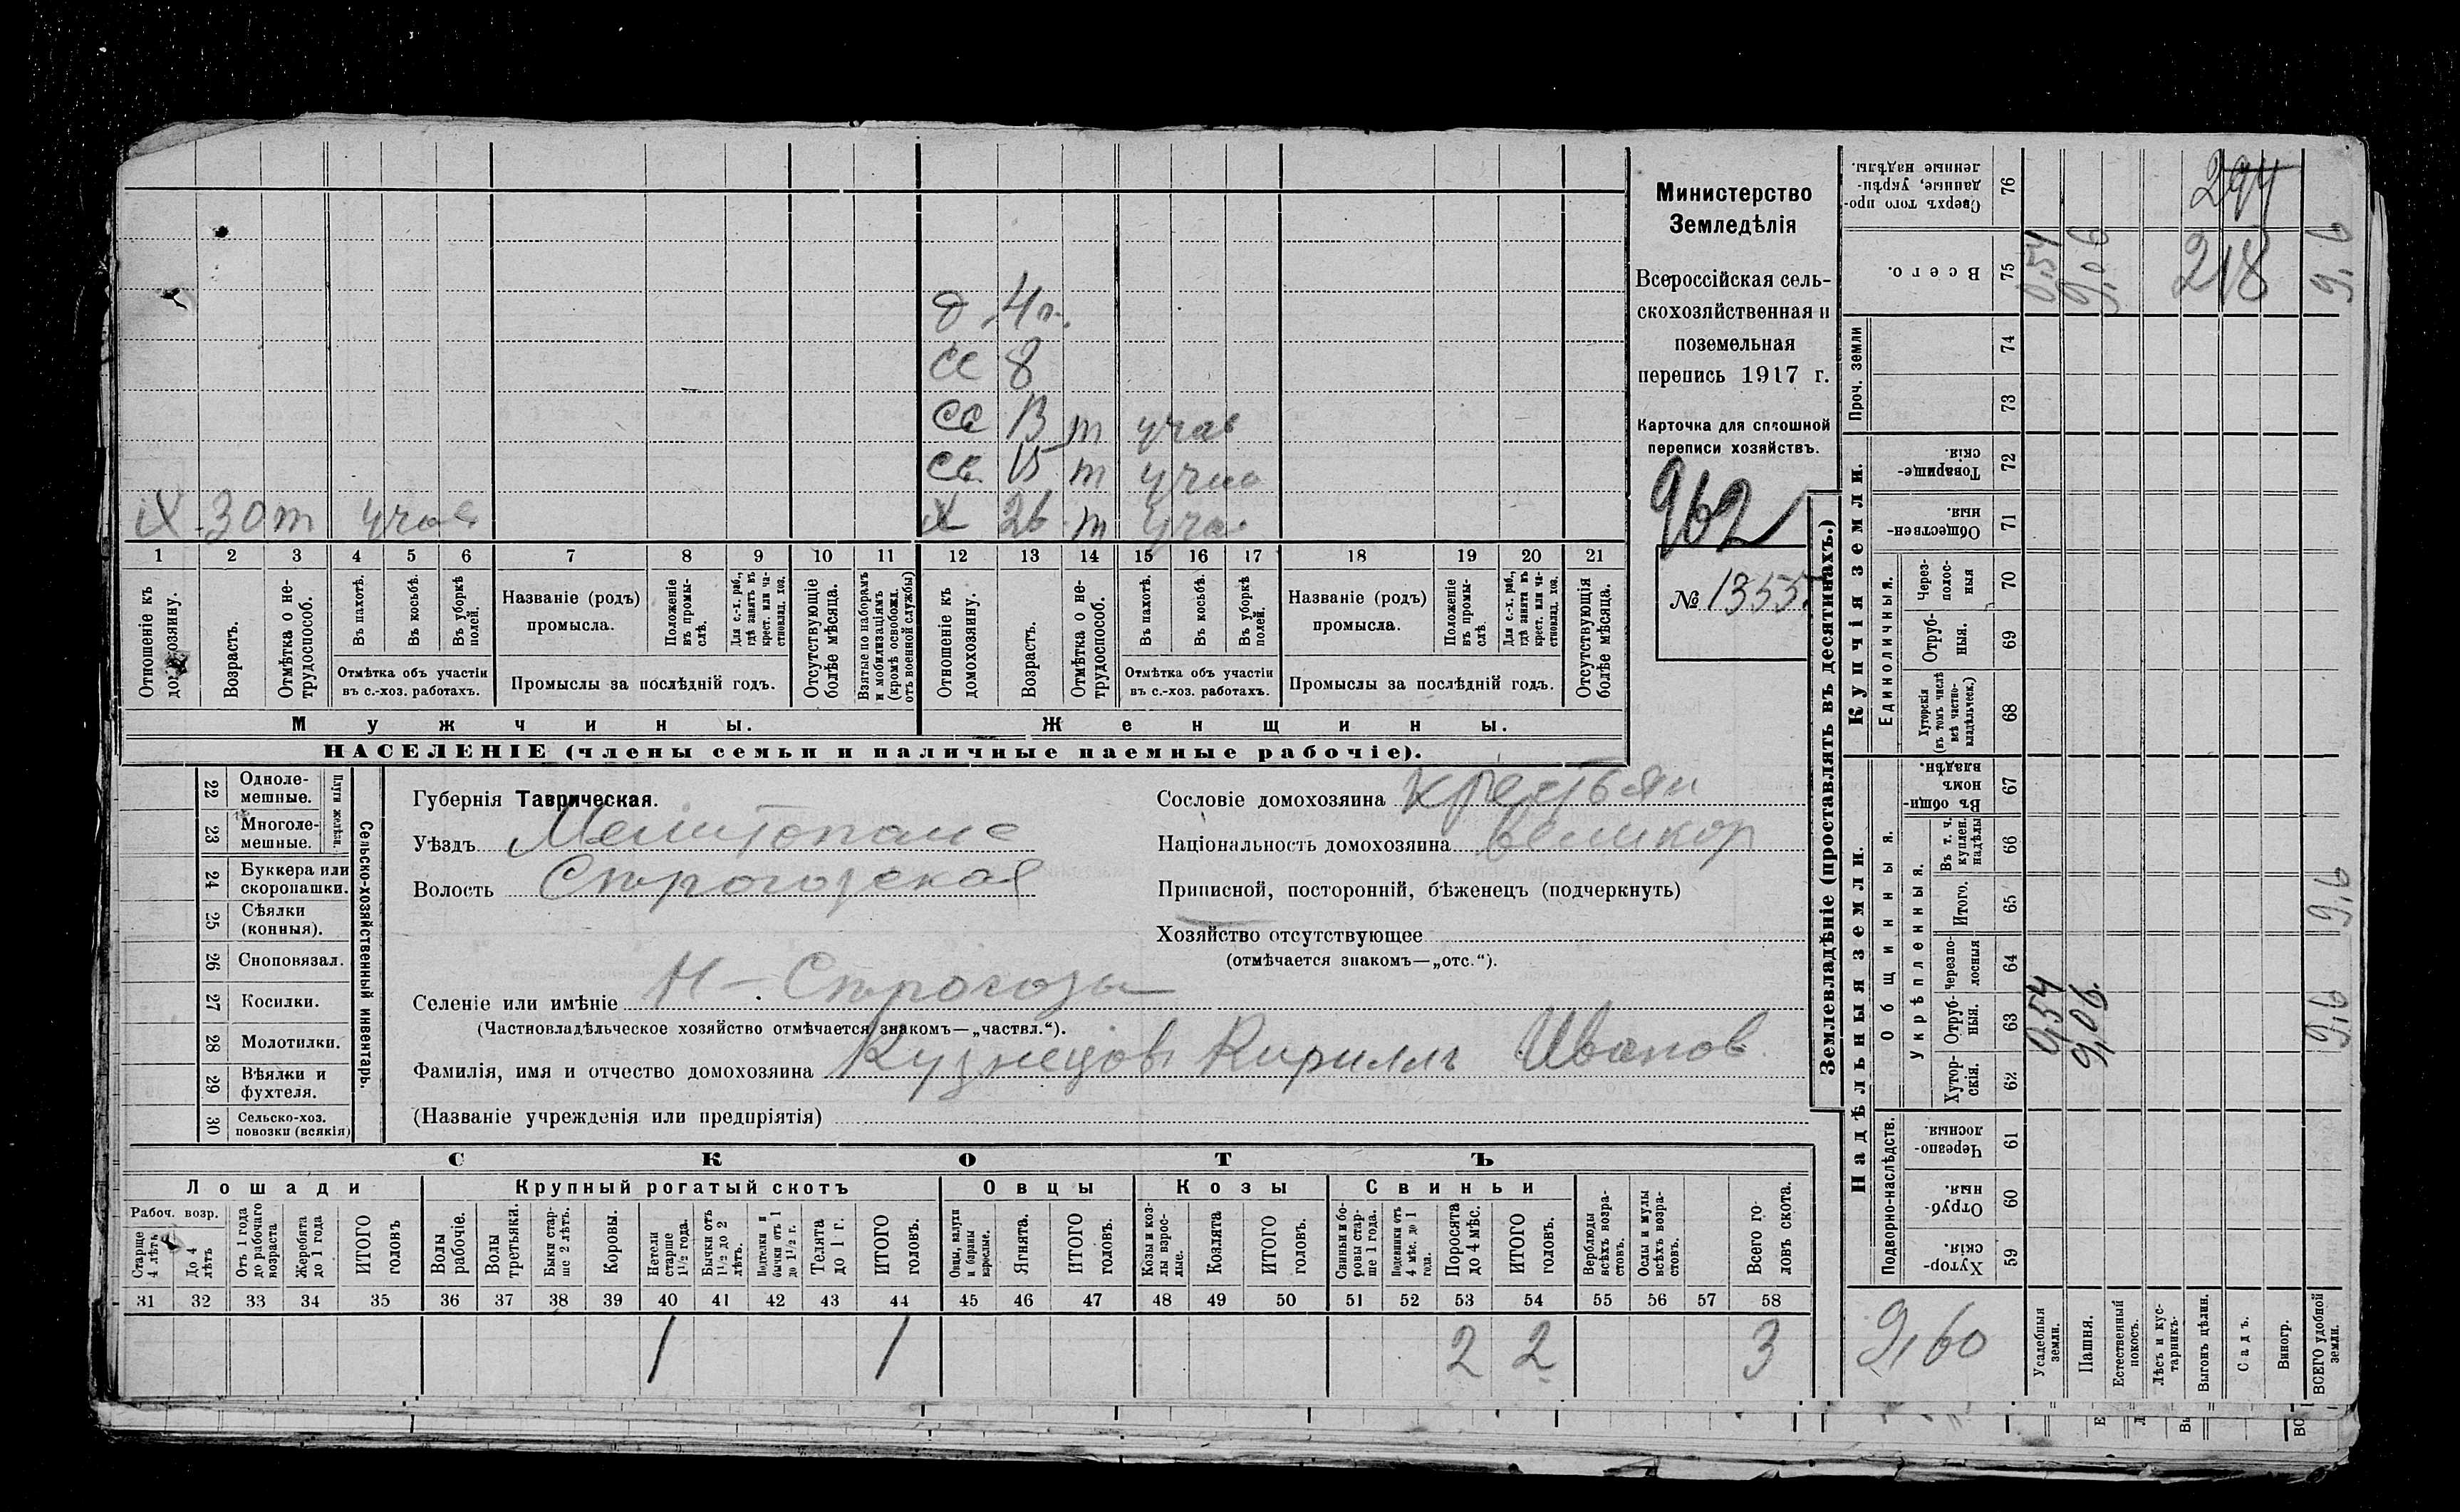 Министерство
Земледѣлія
Всероссійская сель-
скохозяйственная и
поземельная
перепись 1917 г.
Карточка для сплошной
переписи хозяйствъ.
962
№ 1355
д 4 л.
сс 8
св 13 т учас
св 15 т учас
х 30 т учас
х 26 т учас
1 2 3 4 5 6 7 8 9 10 11 12 13 14 15 16 17 18 19 20 21
Отношеніе къ домохозяину.
Возрастъ.
Отмѣтка о не-трудоспособ.
Въ пахотѣ.
Въ косьбѣ.
Въ уборкѣ полей.
Отмѣтка объ участіи
въ с.-хоз. работахъ.
Названіе (родъ)
промысла.
Положеніе въ промы-слѣ.
Для с.-х. раб., гдѣ занятъ въ крест. или ча-стновлад. хоз.
Промыслы за послѣдній годъ.
Отсутствующіе болѣе мѣсяца.
Взятые по наборамъ и мобилизаціямъ (кромѣ освобожд. отъ военной службы)
Отношеніе къ домохозяину.
Возрастъ.
Отмѣтка о не-трудоспособ.
Въ пахотѣ.
Въ косьбѣ.
Въ уборкѣ полей.
Отмѣтка объ участіи
въ с.-хоз. работахъ.
Названіе (родъ)
промысла.
Положеніе въ промы-слѣ.
Для с.-х. раб., гдѣ занята въ крест. или ча-стновлад. хоз.
Промыслы за послѣдній годъ.
Отсутствующія болѣе мѣсяца.
Мужчины.
Женщины.
НАСЕЛЕНІЕ (члены семьи и наличные наемные рабочіе).
Сельско-хозяйственный инвентарь.
Плуги желѣзн.
22 Одноле-мешные.
23 Многоле-мешные.
24 Буккера или скоропашки.
25 Сѣялки (конныя).
26 Сноповязал.
27 Косилки.
28 Молотилки.
29 Вѣялки и фухтеля.
30 Сельско-хоз. повозки (всякія)
Губернія Таврическая.
Уѣздъ Мелитопольс
Волость Строгозская
Селеніе или имѣніе Н-Строгозы
(Частновладѣльческое хозяйство отмѣчается знакомъ—„частвл.“).
Фамилія, имя и отчество домохозяина Кузнецовъ Кириллъ Иванов
(Названіе учрежденія или предпріятія)
Сословіе домохозяина крестьян
Національность домохозяина великор
Приписной, посторонній, бѣженецъ (подчеркнуть)
Хозяйство отсутствующее
(отмѣчается знакомъ—„отс.“).
СКОТЪ
Лошади
Крупный рогатый скотъ
Овцы
Козы
Свиньи
Рабоч. возр.
Старше 4 лѣтъ
До 4 лѣтъ
Отъ 1 года до рабочаго возраста
Жеребята до 1 года
ИТОГО головъ
Волы рабочіе.
Волы третьяки.
Быки стар-ше 2 лѣтъ.
Коровы.
Нетели старше 1½ года.
Бычки отъ 1½ до 2 лѣтъ.
Подтелки и бычки отъ 1 до 1½ г.
Телята до 1 г.
ИТОГО головъ.
Овцы, валухи и бараны взрослые.
Ягнята.
ИТОГО головъ.
Козы и коз-лы взрос-лые.
Козлята
ИТОГО головъ.
Свиньи и бо-ровы стар-ше 1 года.
Подсвинки отъ 4 мѣс. до 1 года.
Поросята до 4 мѣс.
ИТОГО головъ.
Верблюды всѣхъ возра-стовъ.
Ослы и мулы всѣхъ возра-стовъ.
Всего го-ловъ скота.
31 32 33 34 35 36 37 38 39 40 41 42 43 44 45 46 47 48 49 50 51 52 53 54 55 56 57 58
1 1 2 2 3
Землевладѣніе (проставлять въ десятинахъ.)
Надѣльныя земли.
Купчія земли.
Проч. земли
Подворно-наслѣдств.
Общинныя.
Укрѣпленныя.
Единоличныя.
76 Сверхъ того про-данные, укрѣп-ленные надѣлы.
75 Всего.
74
73
72 Товарище-скія.
71 Обществен-ныя.
70 Через-полос-ныя
69 Отруб-ныя.
68 Хуторскія (въ томъ числѣ всѣ частно-владѣльческ.)
67 Въ общин-номъ владѣн.
66 Въ т. ч. куплен. надѣлы
65 Итого.
64 черезпо-лосныя
63 Отруб-ныя.
62 Хутор-скія.
61 Черезпо-лосныя.
60 Отруб-ныя.
59 Хутор-скія.
294
218
0,54
9,06
9,6
9,6
0,54
9,06.
9,6
9,60
Усадебныя земли.
Пашня.
Естественный покосъ.
Лѣсъ и кус-тарникъ.
Выгонъ цѣлин.
Садъ.
Виногр.
ВСЕГО удобной земли.